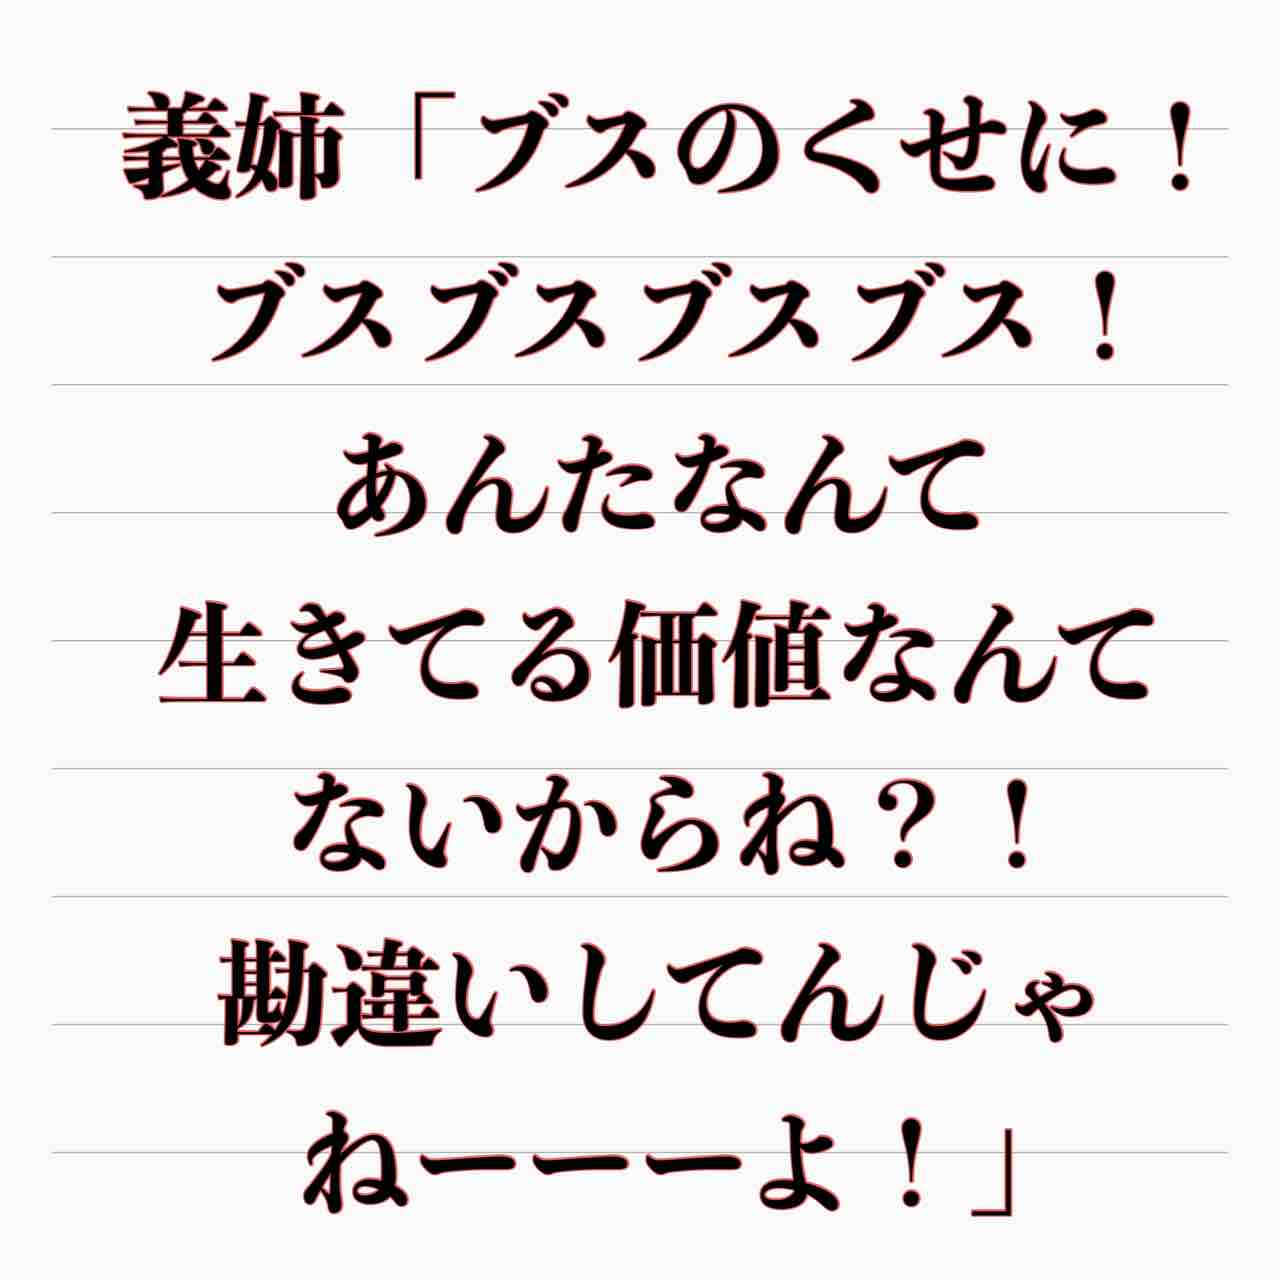 義姉「ブスのくせに！
ブスブスブスブス！
あんたなんて
生きてる価値なんて
ないからね？！
勘違いしてんじゃ
ねーーーよ！」